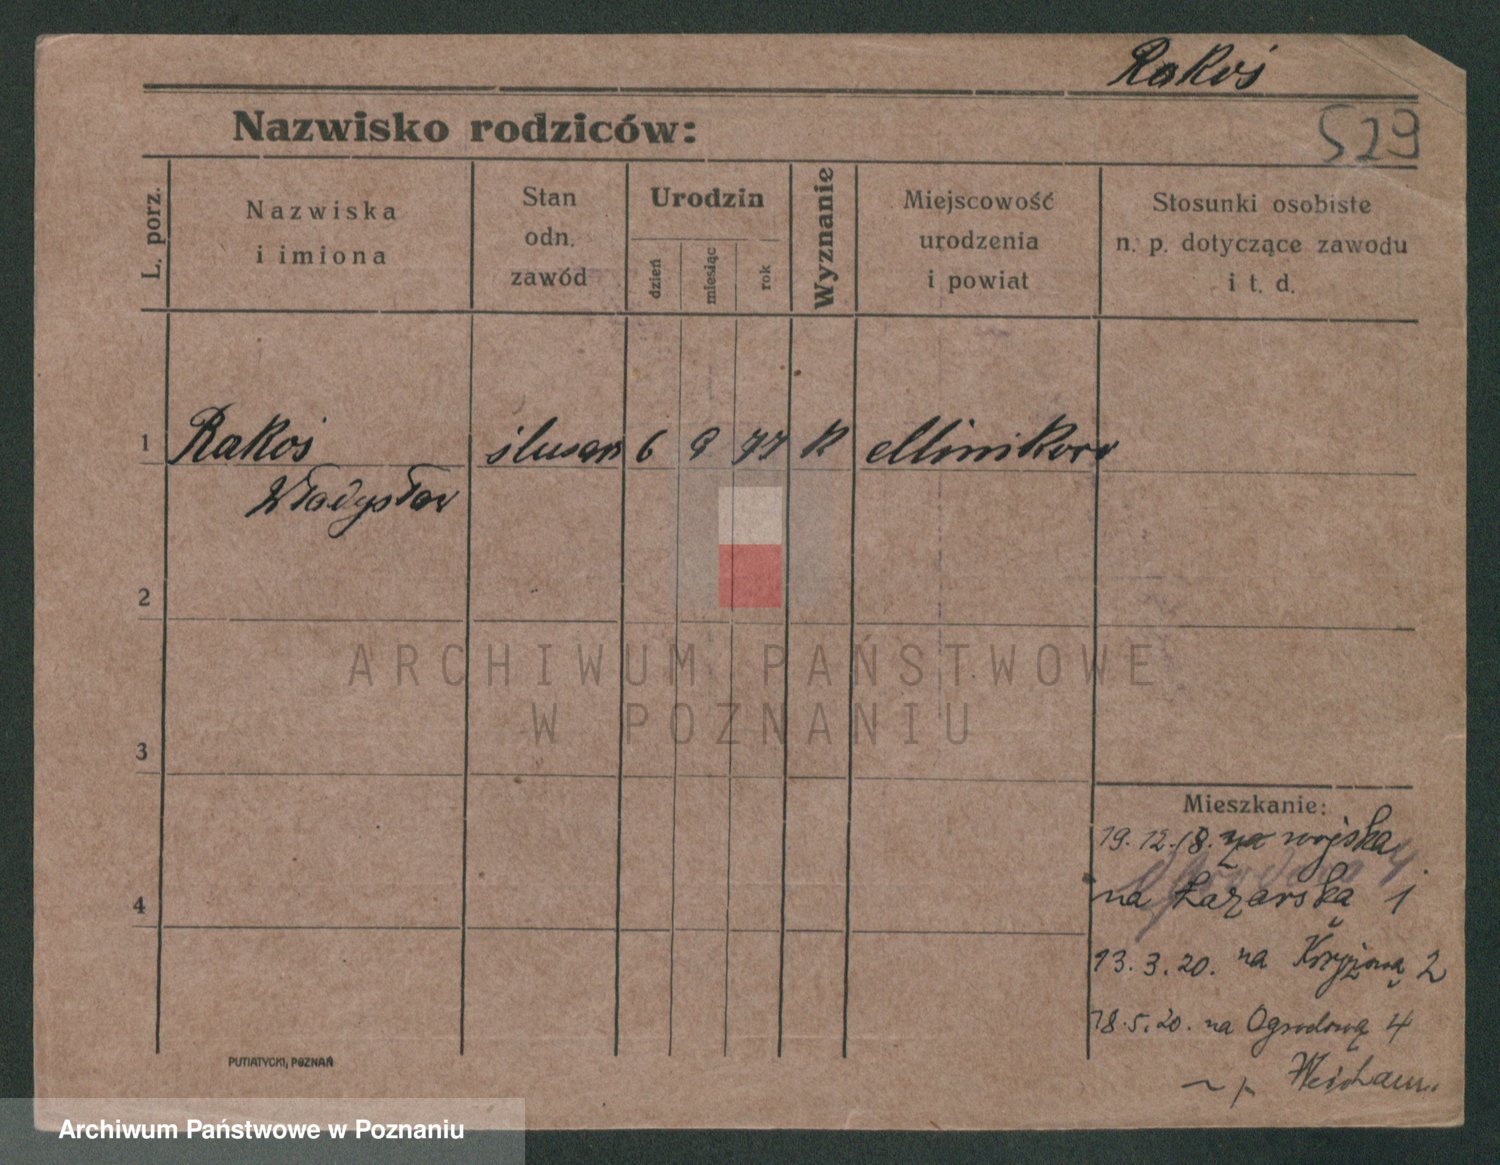 Rakoś
Nazwisko rodziców:
529
L. porz.
Nazwiska
i imiona
Stan
odn.
zawód
Urodzin
dzień
miesiąc
rok
Wyznanie
Miejscowość
urodzenia
i powiat
Stosunki osobiste
n. p. dotyczące zawodu
i t. d.
1 Rakoś ślusarz 6 9 77 k Minikowo
Władysław
2
3
4
Mieszkanie:
19.12.18. z wojska
na Łazarską 1
13.3.20. na Krzyżową 2
18.5.20. na Ogrodową 4
PUTIATYCKI, POZNAŃ
ARCHIWUM PAŃSTWOWE
W POZNANIU
Archiwum Państwowe w Poznaniu